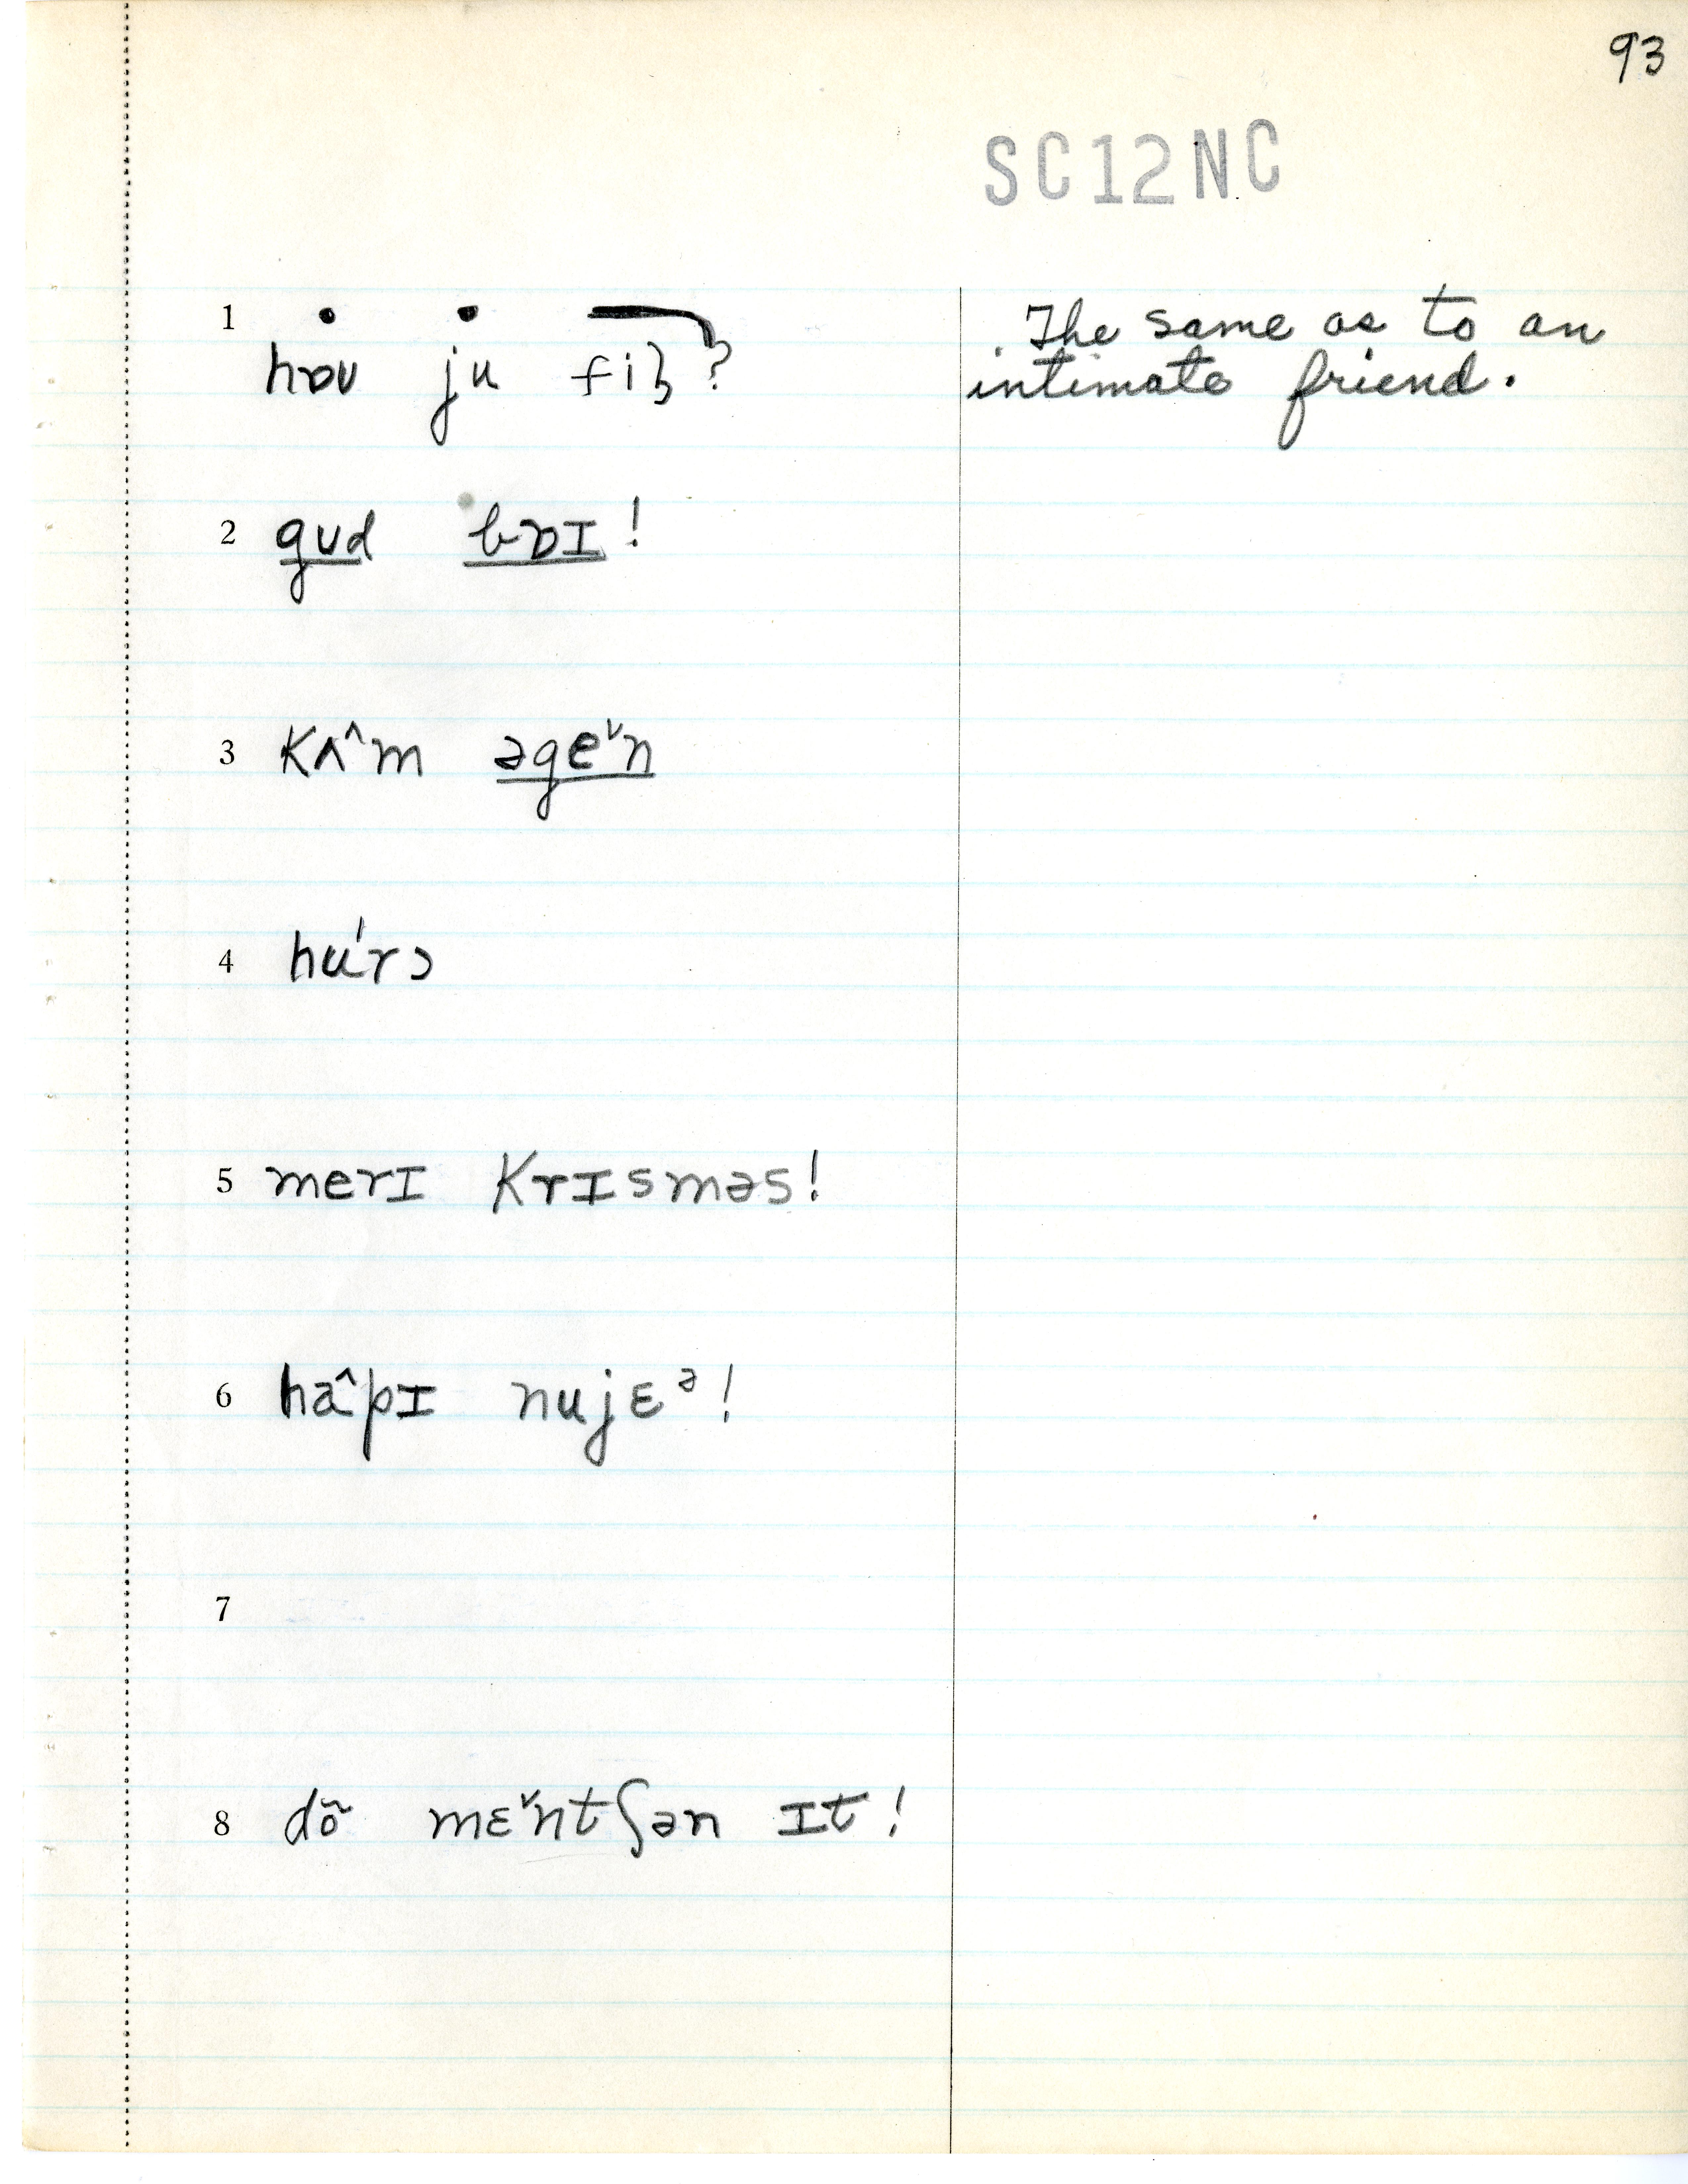 93
SC12NC
1 hɒʊ ju fiɫ?
The same as to an
intimate friend.
2 gʊd bɒɪ!
3 kʌ^m əge˅n
4 hu'rɔ
5 merɪ krɪsməs!
6 ha^pɪ nujɛᵊ!
7
8 dõ mɛ˅ntʃən ɪt!